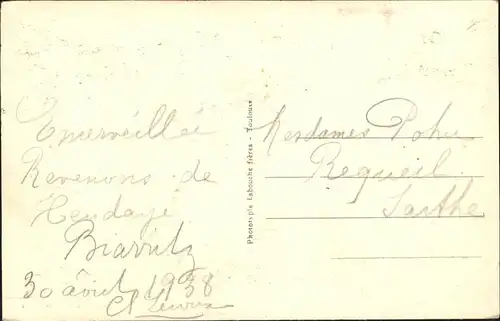 Emerveillée
Revenons de
Hendaye
Biarritz
30 août 1938
Phototypie Labouche frères - Toulouse
Mesdames Pohu
Requeil
Sarthe